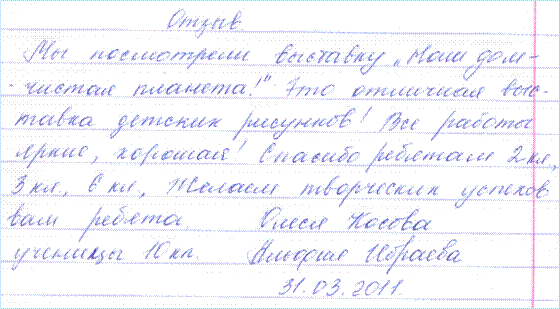 Отзыв.
Мы посмотрели выставку „Наш дом-
- чистая планета!" Это отличная выс-
тавка детских рисунков! Все работы
яркие, хорошая! Спасибо ребятам 2 кл,
3 кл, 6 кл, Желаем творческих успехов
вам ребята. Олеся Косова
ученицы 10 кл. Альфия Ибраева
31.03.2011